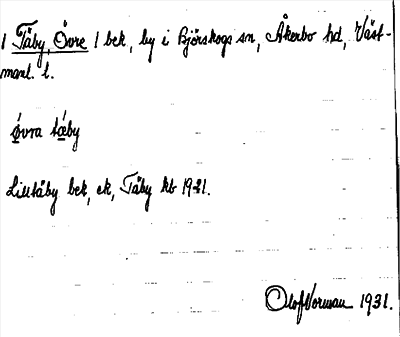 1 Täby, Övre 1 bek, by i Björskogs sn, Åkerbo hd, Väst-
manl. l.
övra täby
Lilltäby bek, ek, Täby kb 1931.
Olof Norman 1931.